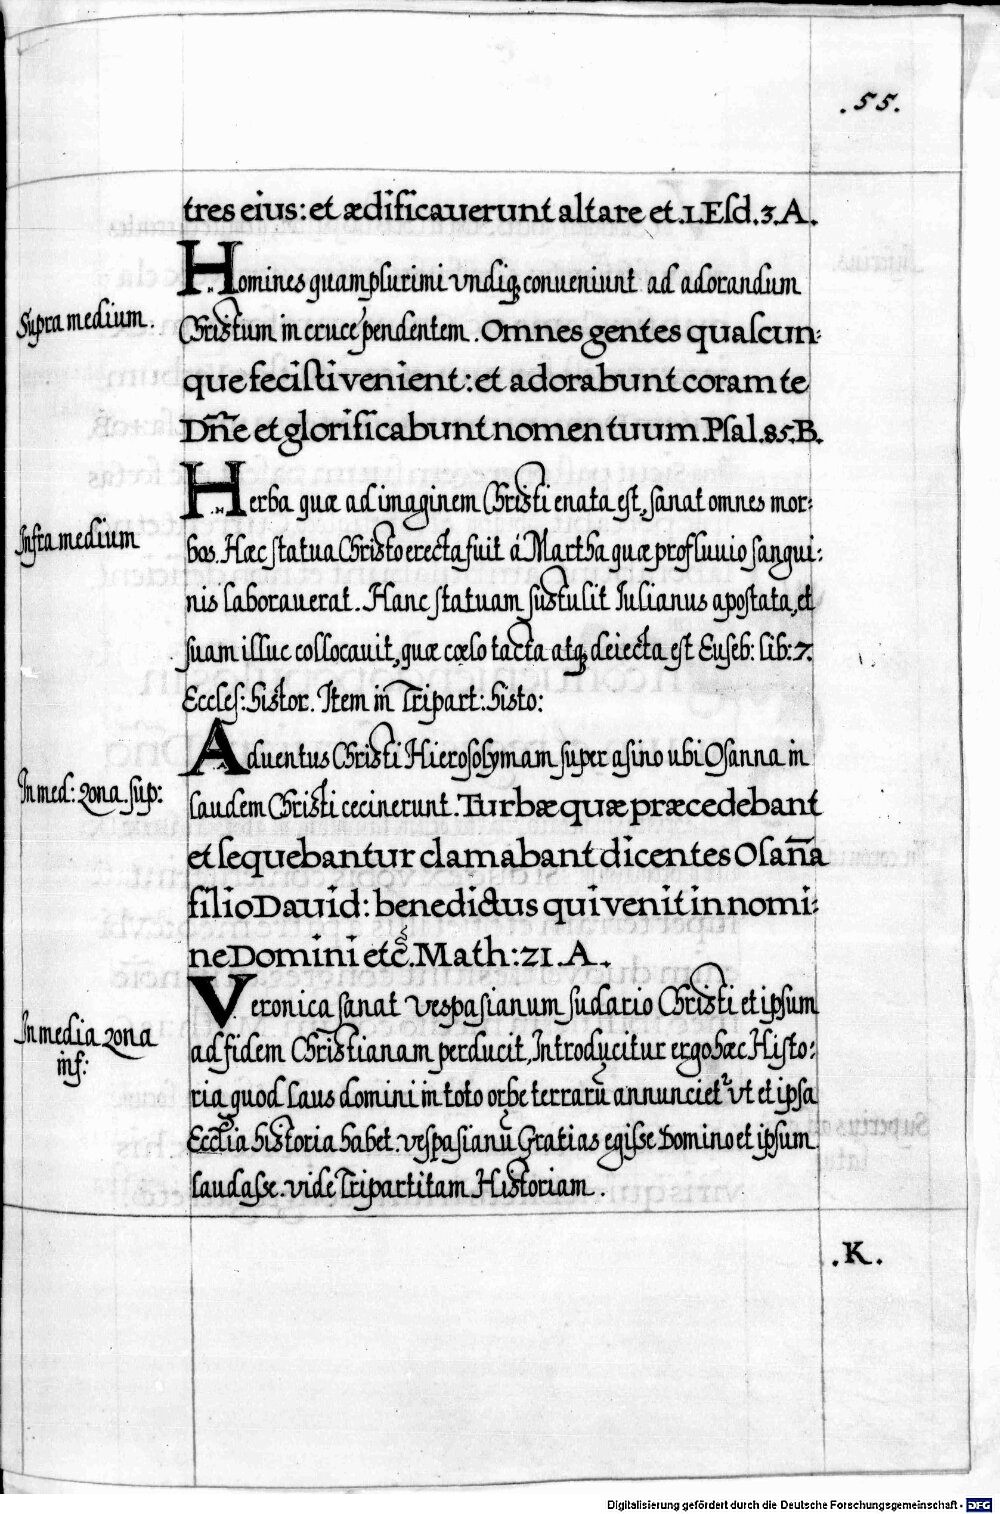 .55.
tres eius: et ædificauerunt altare et .1.Esd.3.A.
Homines quamplurimi vndiq; conueniunt ad adorandum
Supra medium.
Christum in cruce pendentem. Omnes gentes quascun-
que fecisti venient: et adorabunt coram te
Dñe et glorificabunt nomen tuum. Psal.85.B.
Herba quæ ad imaginem Christi enata est, sanat omnes mor-
Infra medium
bos. Hæc statua Christo erecta fuit á Martha quæ profluuio sangui-
nis laborauerat. Hanc statuam sustulit Iulianus apostata, et
suam illuc collocauit, quæ cœlo tacta atq; deiecta est Euseb: lib:7.
Eccles: histor. Item in Tripart: histo:
Aduentus Christi Hierosolymam super asino ubi Osanna in
In med: zona. sup:
laudem Christi cecinerunt. Turbæ quæ præcedebant
et sequebantur clamabant dicentes Osaña
filio Dauid: benedictus qui venit in nomi-
ne Domini etc̃. Math: 21. A.
Veronica sanat Vespasianum sudario Christi et ipsum
In media zona
inf:
ad fidem Christianam perducit, Introducitur ergo hæc Histo-
ria quod laus domini in toto orbe terrarũ annunciet² vt et ipsa
Ecctia historia habet. vespasianũ Gratias egisse Domino et ipsum
laudasse. vide Tripartitam Historiam.
.K.
Digitalisierung gefördert durch die Deutsche Forschungsgemeinschaft - DFG